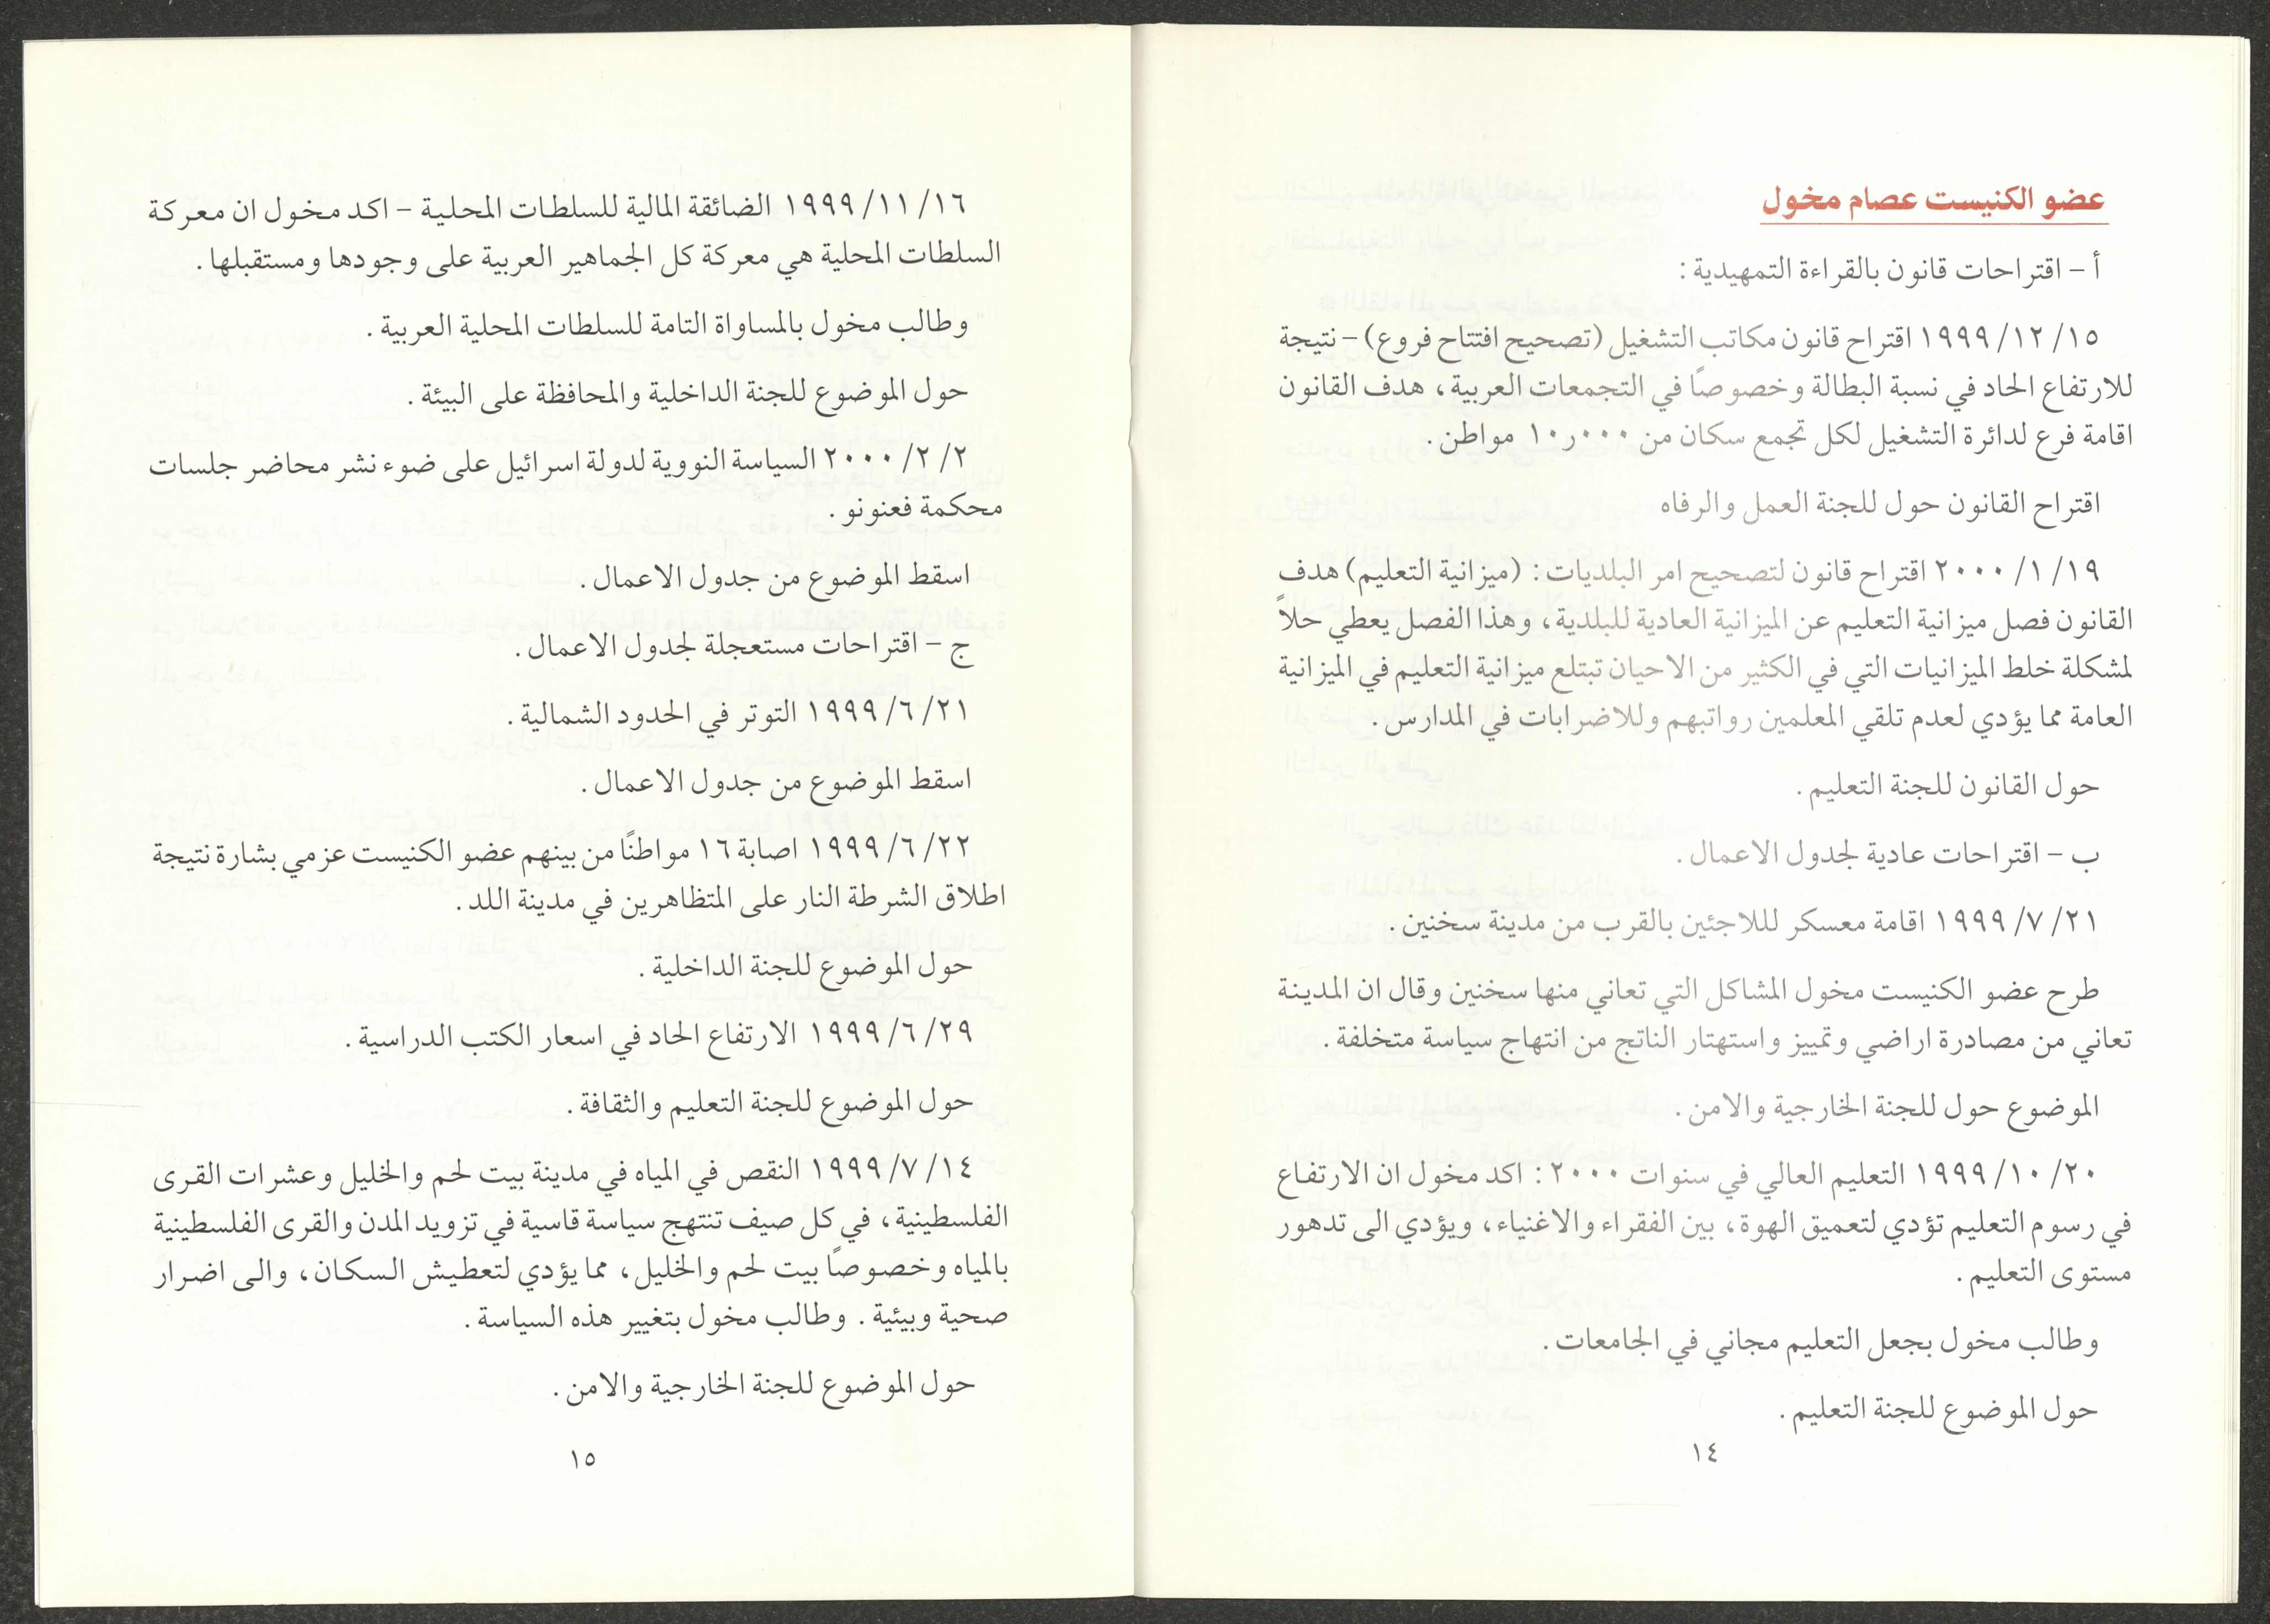 عضو الكنيست عصام مخول
أ – اقتراحات قانون بالقراءة التمهيدية :
١٥/ ١٢/ ١٩٩٩ اقتراح قانون مكاتب التشغيل (تصحيح افتتاح فروع) – نتيجة
للارتفاع الحاد في نسبة البطالة وخصوصًا في التجمعات العربية، هدف القانون
اقامة فرع لدائرة التشغيل لكل تجمع سكان من ١٠ر٠٠٠ مواطن .
اقتراح القانون حول للجنة العمل والرفاه
١٩/ ١/ ٢٠٠٠ اقتراح قانون لتصحيح امر البلديات : (ميزانية التعليم) هدف
القانون فصل ميزانية التعليم عن الميزانية العادية للبلدية، وهذا الفصل يعطي حلاً
لمشكلة خلط الميزانيات التي في الكثير من الاحيان تبتلع ميزانية التعليم في الميزانية
العامة مما يؤدي لعدم تلقي المعلمين رواتبهم وللاضرابات في المدارس .
حول القانون للجنة التعليم .
ب – اقتراحات عادية لجدول الاعمال .
٢١/ ٧/ ١٩٩٩ اقامة معسكر لللاجئين بالقرب من مدينة سخنين .
طرح عضو الكنيست مخول المشاكل التي تعاني منها سخنين وقال ان المدينة
تعاني من مصادرة اراضي وتمييز واستهتار الناتج من انتهاج سياسة متخلفة .
الموضوع حول للجنة الخارجية والامن .
٢٠/ ١٠/ ١٩٩٩ التعليم العالي في سنوات ٢٠٠٠ : اكد مخول ان الارتفاع
في رسوم التعليم تؤدي لتعميق الهوة، بين الفقراء والاغنياء، ويؤدي الى تدهور
مستوى التعليم .
وطالب مخول بجعل التعليم مجاني في الجامعات .
حول الموضوع للجنة التعليم .
١٤
١٦/ ١١/ ١٩٩٩ الضائقة المالية للسلطات المحلية – اكد مخول ان معركة
السلطات المحلية هي معركة كل الجماهير العربية على وجودها ومستقبلها .
وطالب مخول بالمساواة التامة للسلطات المحلية العربية .
حول الموضوع للجنة الداخلية والمحافظة على البيئة .
٢/ ٢/ ٢٠٠٠ السياسة النووية لدولة اسرائيل على ضوء نشر محاضر جلسات
محكمة فعنونو .
اسقط الموضوع من جدول الاعمال .
ج – اقتراحات مستعجلة لجدول الاعمال .
٢١/ ٦/ ١٩٩٩ التوتر في الحدود الشمالية .
اسقط الموضوع من جدول الاعمال .
٢٢/ ٦/ ١٩٩٩ اصابة ١٦ مواطنًا من بينهم عضو الكنيست عزمي بشارة نتيجة
اطلاق الشرطة النار على المتظاهرين في مدينة اللد .
حول الموضوع للجنة الداخلية .
٢٩/ ٦/ ١٩٩٩ الارتفاع الحاد في اسعار الكتب الدراسية .
حول الموضوع للجنة التعليم والثقافة .
١٤/ ٧/ ١٩٩٩ النقص في المياه في مدينة بيت لحم والخليل وعشرات القرى
الفلسطينية، في كل صيف تنتهج سياسة قاسية في تزويد المدن والقرى الفلسطينية
بالمياه وخصوصًا بيت لحم والخليل، مما يؤدي لتعطيش السكان، والى اضرار
صحية وبيئية . وطالب مخول بتغيير هذه السياسة .
حول الموضوع للجنة الخارجية والامن .
١٥